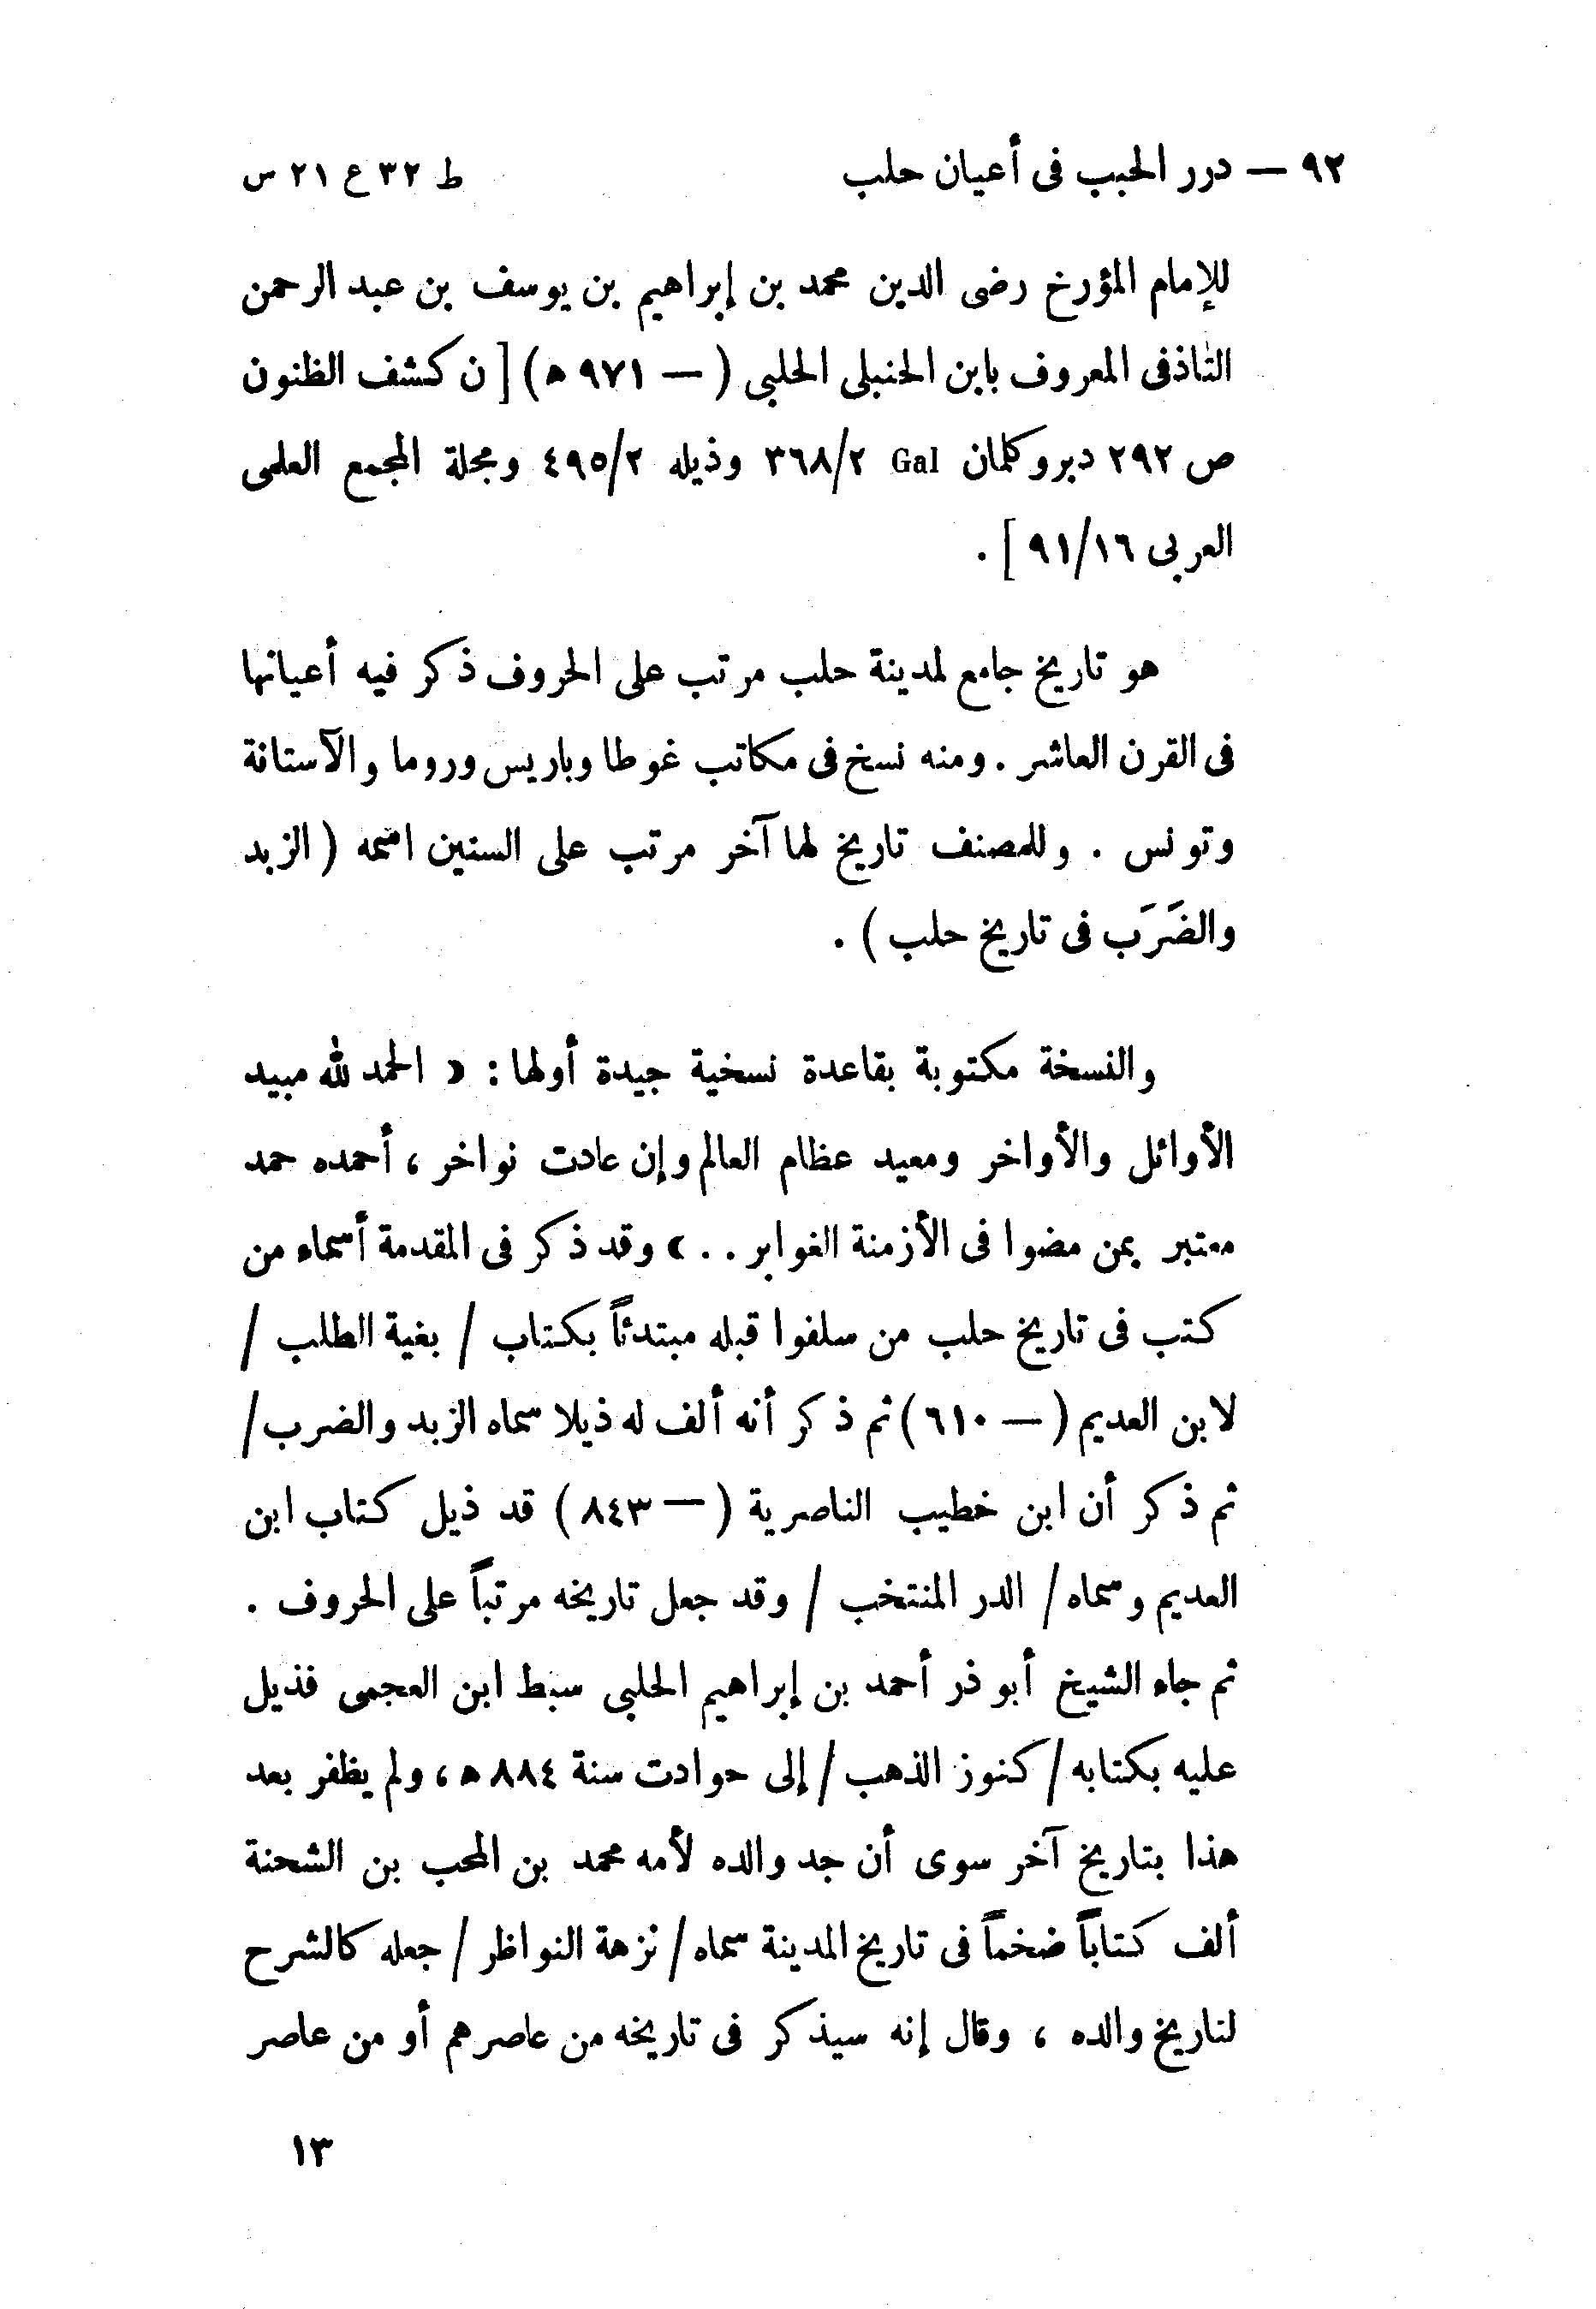 ٩٢ — درر الحبب فى أعيان حلب ط ٣٢ ع ٢١ س
للإمام المؤرخ رضى الدين محمد بن إبراهيم بن يوسف بن عبد الرحمن
التاذفى المعروف بابن الحنبلى الحلبى ( — ٩٧١ ه) [ ن كشف الظنون
ص ٢٩٢ دبروكلمان Gal ٣٦٨/٢ وذيله ٤٩٥/٢ ومجلة المجمع العلمى
العربى ٩١/١٦ ] .
هو تاريخ جامع لمدينة حلب مرتب على الحروف ذكر فيه أعيانها
فى القرن العاشر . ومنه نسخ فى مكاتب غوطا وباريس وروما والآستانة
وتونس . وللمصنف تاريخ لها آخر مرتب على السنين اسمه ( الزبد
والضَرَب فى تاريخ حلب ) .
والنسخة مكتوبة بقاعدة نسخية جيدة أولها : « الحمد لله مبيد
الأوائل والأواخر ومعيد عظام العالم وإن عادت نواخر ، أحمده حمد
معتبر بمن مضوا فى الأزمنة الغوابر . . » وقد ذكر فى المقدمة أسماء من
كتب فى تاريخ حلب من سلفوا قبله مبتدئاً بكتاب / بغية الطلب /
لابن العديم ( — ٦١٠) ثم ذكر أنه ألف له ذيلا سماه الزبد والضرب /
ثم ذكر أن ابن خطيب الناصرية ( — ٨٤٣ ) قد ذيل كتاب ابن
العديم وسماه / الدر المنتخب / وقد جعل تاريخه مرتباً على الحروف .
ثم جاء الشيخ أبو ذر أحمد بن إبراهيم الحلبى سبط ابن العجمى فذيل
عليه بكتابه / كنوز الذهب / إلى حوادت سنة ٨٨٤ ه ، ولم يظفر بعد
هذا بتاريخ آخر سوى أن جد والده لأمه محمد بن المحب بن الشحنة
ألف كتاباً ضخماً فى تاريخ المدينة سماه / نزهة النواظر / جعله كالشرح
لتاريخ والده ، وقال إنه سيذكر فى تاريخه من عاصرهم أو من عاصر
١٣